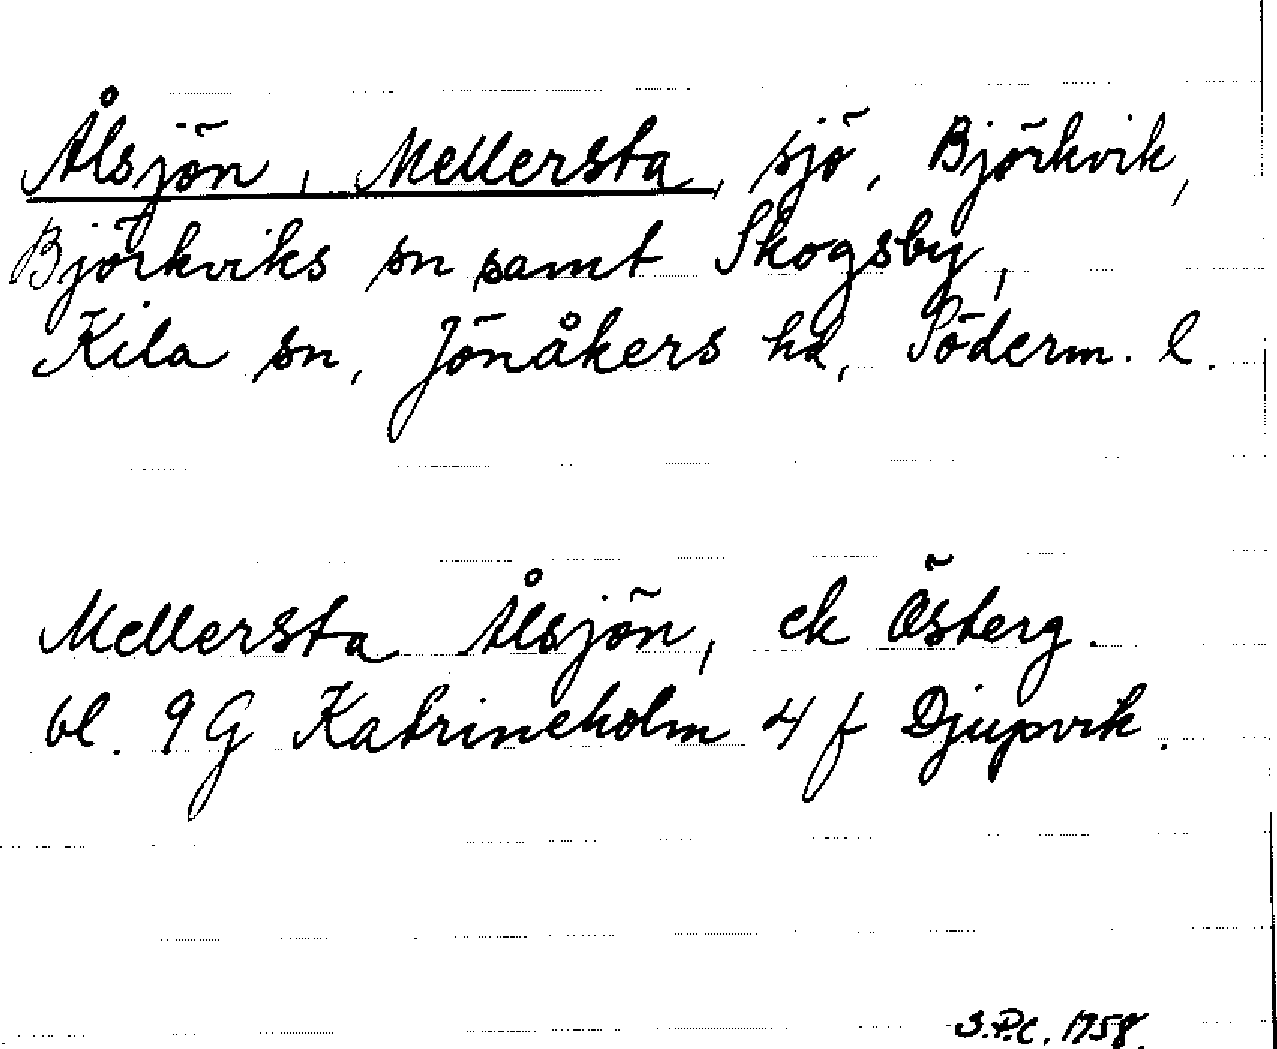 Ålsjön, Mellersta, sjö, Björkvik,
Björkviks sn samt Skogsby,
Kila sn, Jönåkers hd, Söderm. l.
Mellersta Ålsjön, ek Österg.
bl. 9G Katrineholm 4 f Djupvik.
S.P.C. 1758.